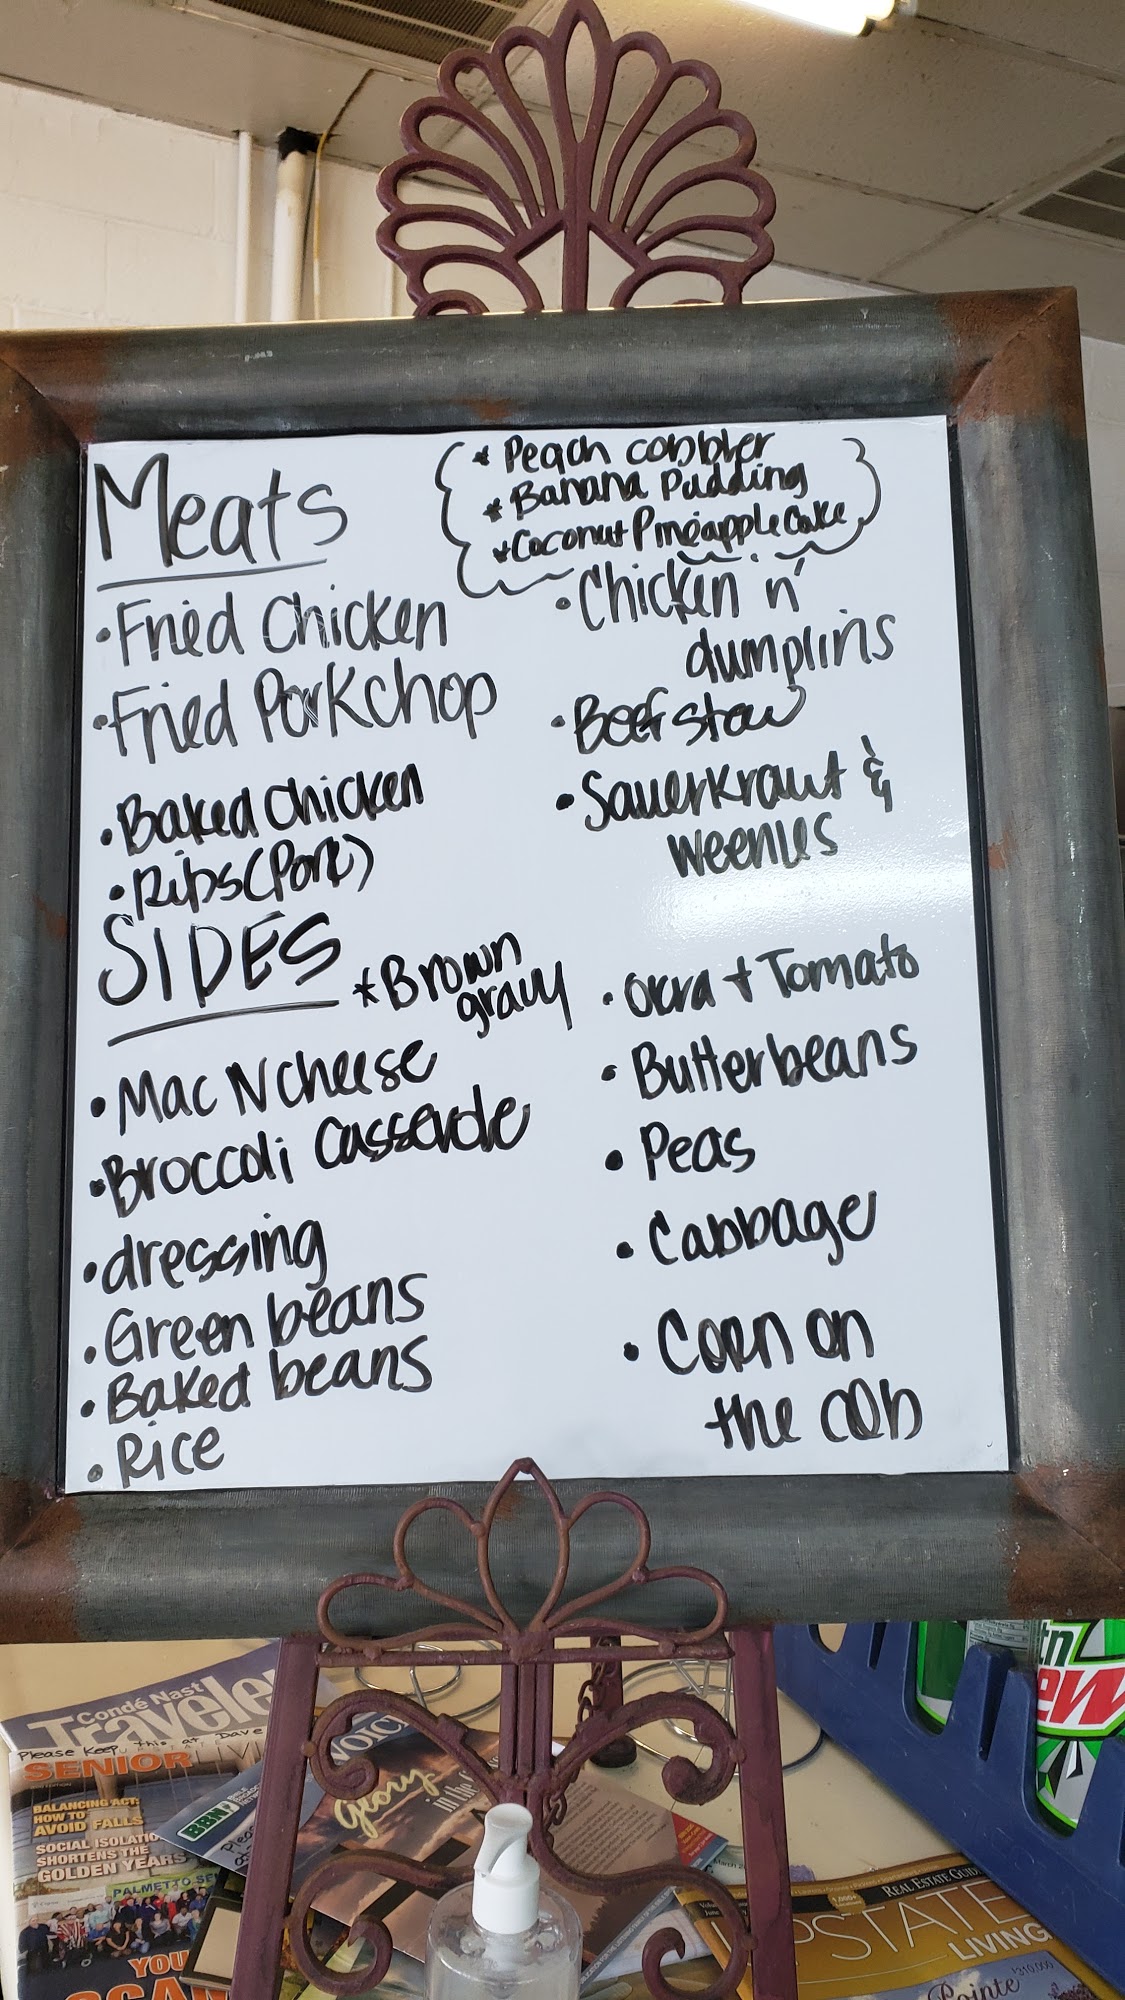 Meats
* Peach cobbler
* Banana Pudding
* Coconut Pineapple Cake
• Fried Chicken
• Fried Porkchop
• Baked Chicken
• Ribs (Pork)
• Chicken n'
dumplins
• Beef stew
• Sauerkraut &
weenies
SIDES
* Brown
gravy
• Mac N cheese
• Broccoli Casserole
• dressing
• Green beans
• Baked beans
• Rice
• Okra + Tomato
• Butterbeans
• Peas
• Cabbage
• Corn on
the cob
Condé Nast
Traveler
Please keep this at Dave
SENIOR LIVI
BALANCING ACT:
HOW TO
AVOID FALLS
SOCIAL ISOLATIO
SHORTENS THE
GOLDEN YEARS
PALMETTO SE
YOU
BBN
VOIC
Glory
in the
REAL ESTATE GUIDE
UPSTATE
LIVING
Pointe
$310,000
tn
ew